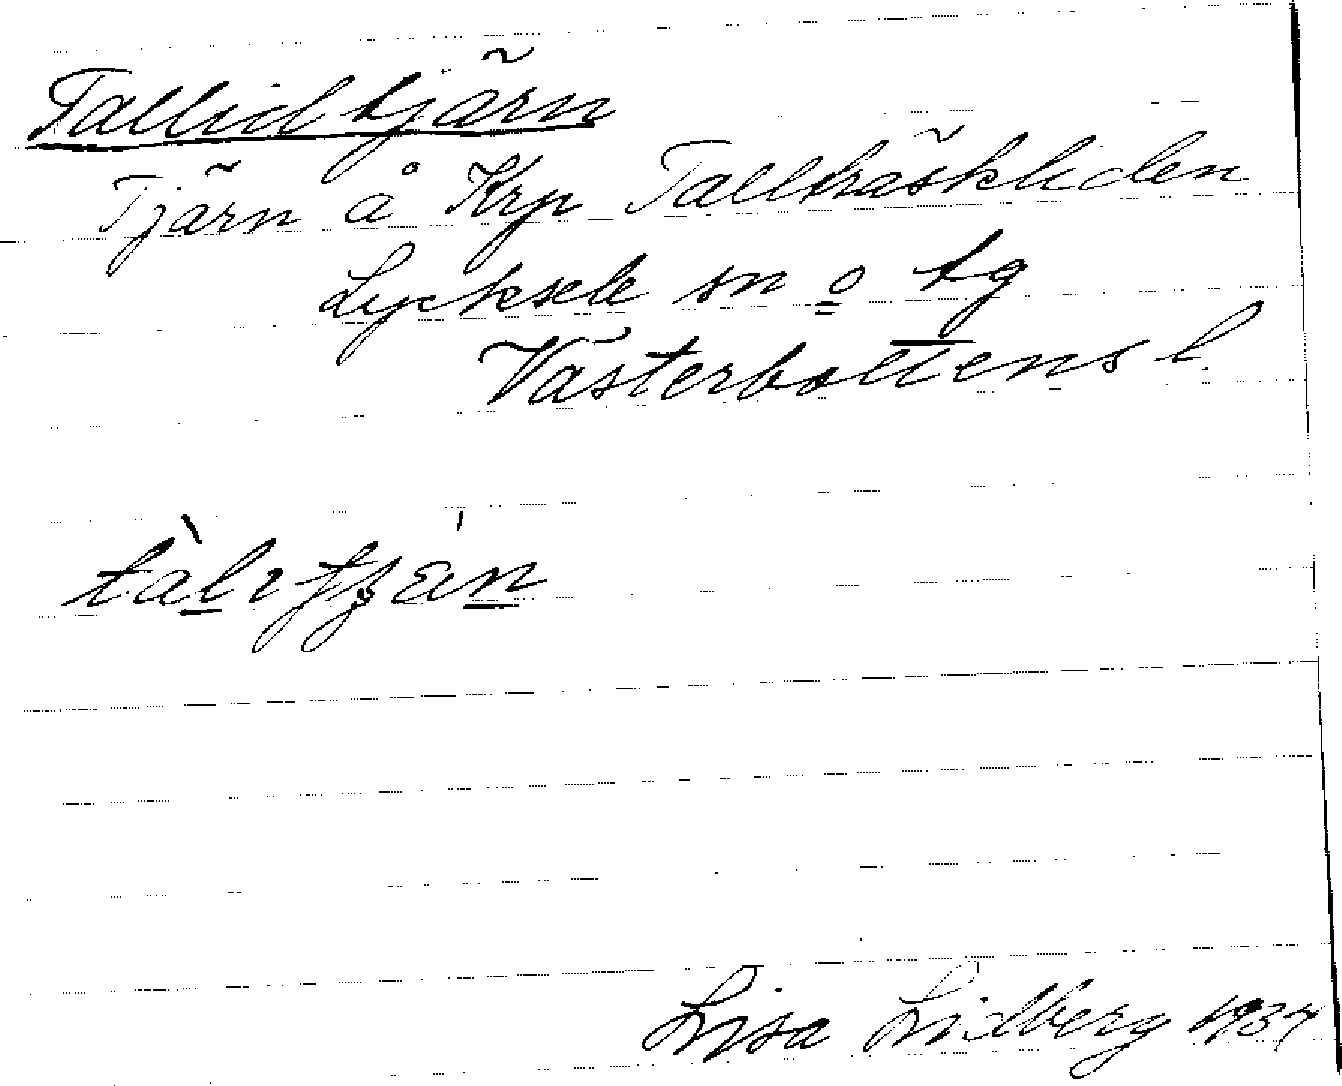 Tallidtjärn
Tjärn å Krp Tallträskliden
Lycksele sn o tg
Västerbottens l.
Lisa Lidberg 1937